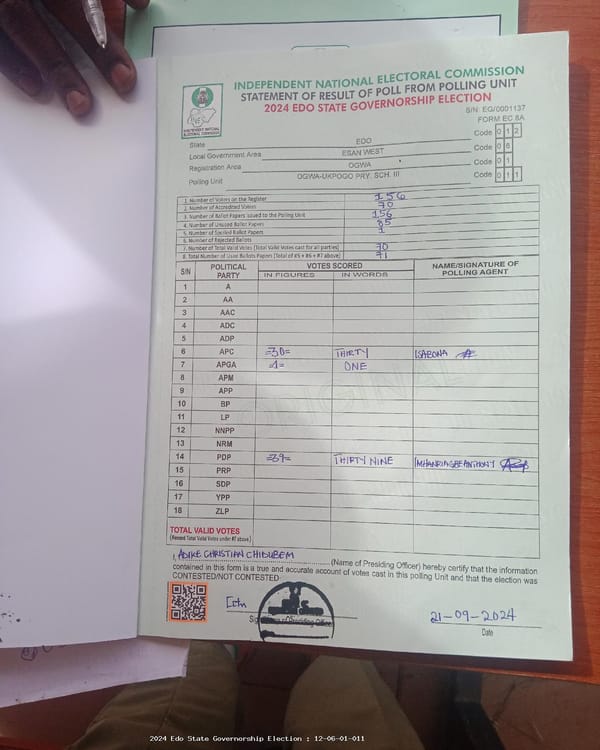 INDEPENDENT NATIONAL ELECTORAL COMMISSION
STATEMENT OF RESULT OF POLL FROM POLLING UNIT
2024 EDO STATE GOVERNORSHIP ELECTION
S/N: EG/0001137
FORM EC 8A
INDEPENDENT NATIONAL ELECTORAL COMMISSION
State EDO Code 0 1 2
Local Government Area ESAN WEST Code 0 6
Registration Area OGWA Code 0 1
Polling Unit OGWA-UKPOGO PRY. SCH. III Code 0 1 1
1. Number of Voters on the Register 156
2. Number of Accredited Voters 70
3. Number of Ballot Papers Issued to the Polling Unit 156
4. Number of Unused Ballot Papers 85
5. Number of Spoiled Ballot Papers 1
6. Number of Rejected Ballots
7. Number of Total Valid Votes (Total Valid Votes cast for all parties) 70
8. Total Number of Used Ballots Papers (Total of #5 + #6 + #7 above) 71
S/N POLITICAL PARTY VOTES SCORED NAME/SIGNATURE OF POLLING AGENT
IN FIGURES IN WORDS
1 A
2 AA
3 AAC
4 ADC
5 ADP
6 APC =30= THIRTY ISABONA
7 APGA =1= ONE
8 APM
9 APP
10 BP
11 LP
12 NNPP
13 NRM
14 PDP =39= THIRTY NINE IMHANRIAGBE ANTHONY
15 PRP
16 SDP
17 YPP
18 ZLP
TOTAL VALID VOTES
(Record Total Valid Votes under #7 above)
I, ADIKE CHRISTIAN CHIDUBEM (Name of Presiding Officer) hereby certify that the information
contained in this form is a true and accurate account of votes cast in this polling Unit and that the election was
CONTESTED/NOT CONTESTED
Signature of Presiding Officer
21-09-2024
Date
2024 Edo State Governorship Election : 12-06-01-011